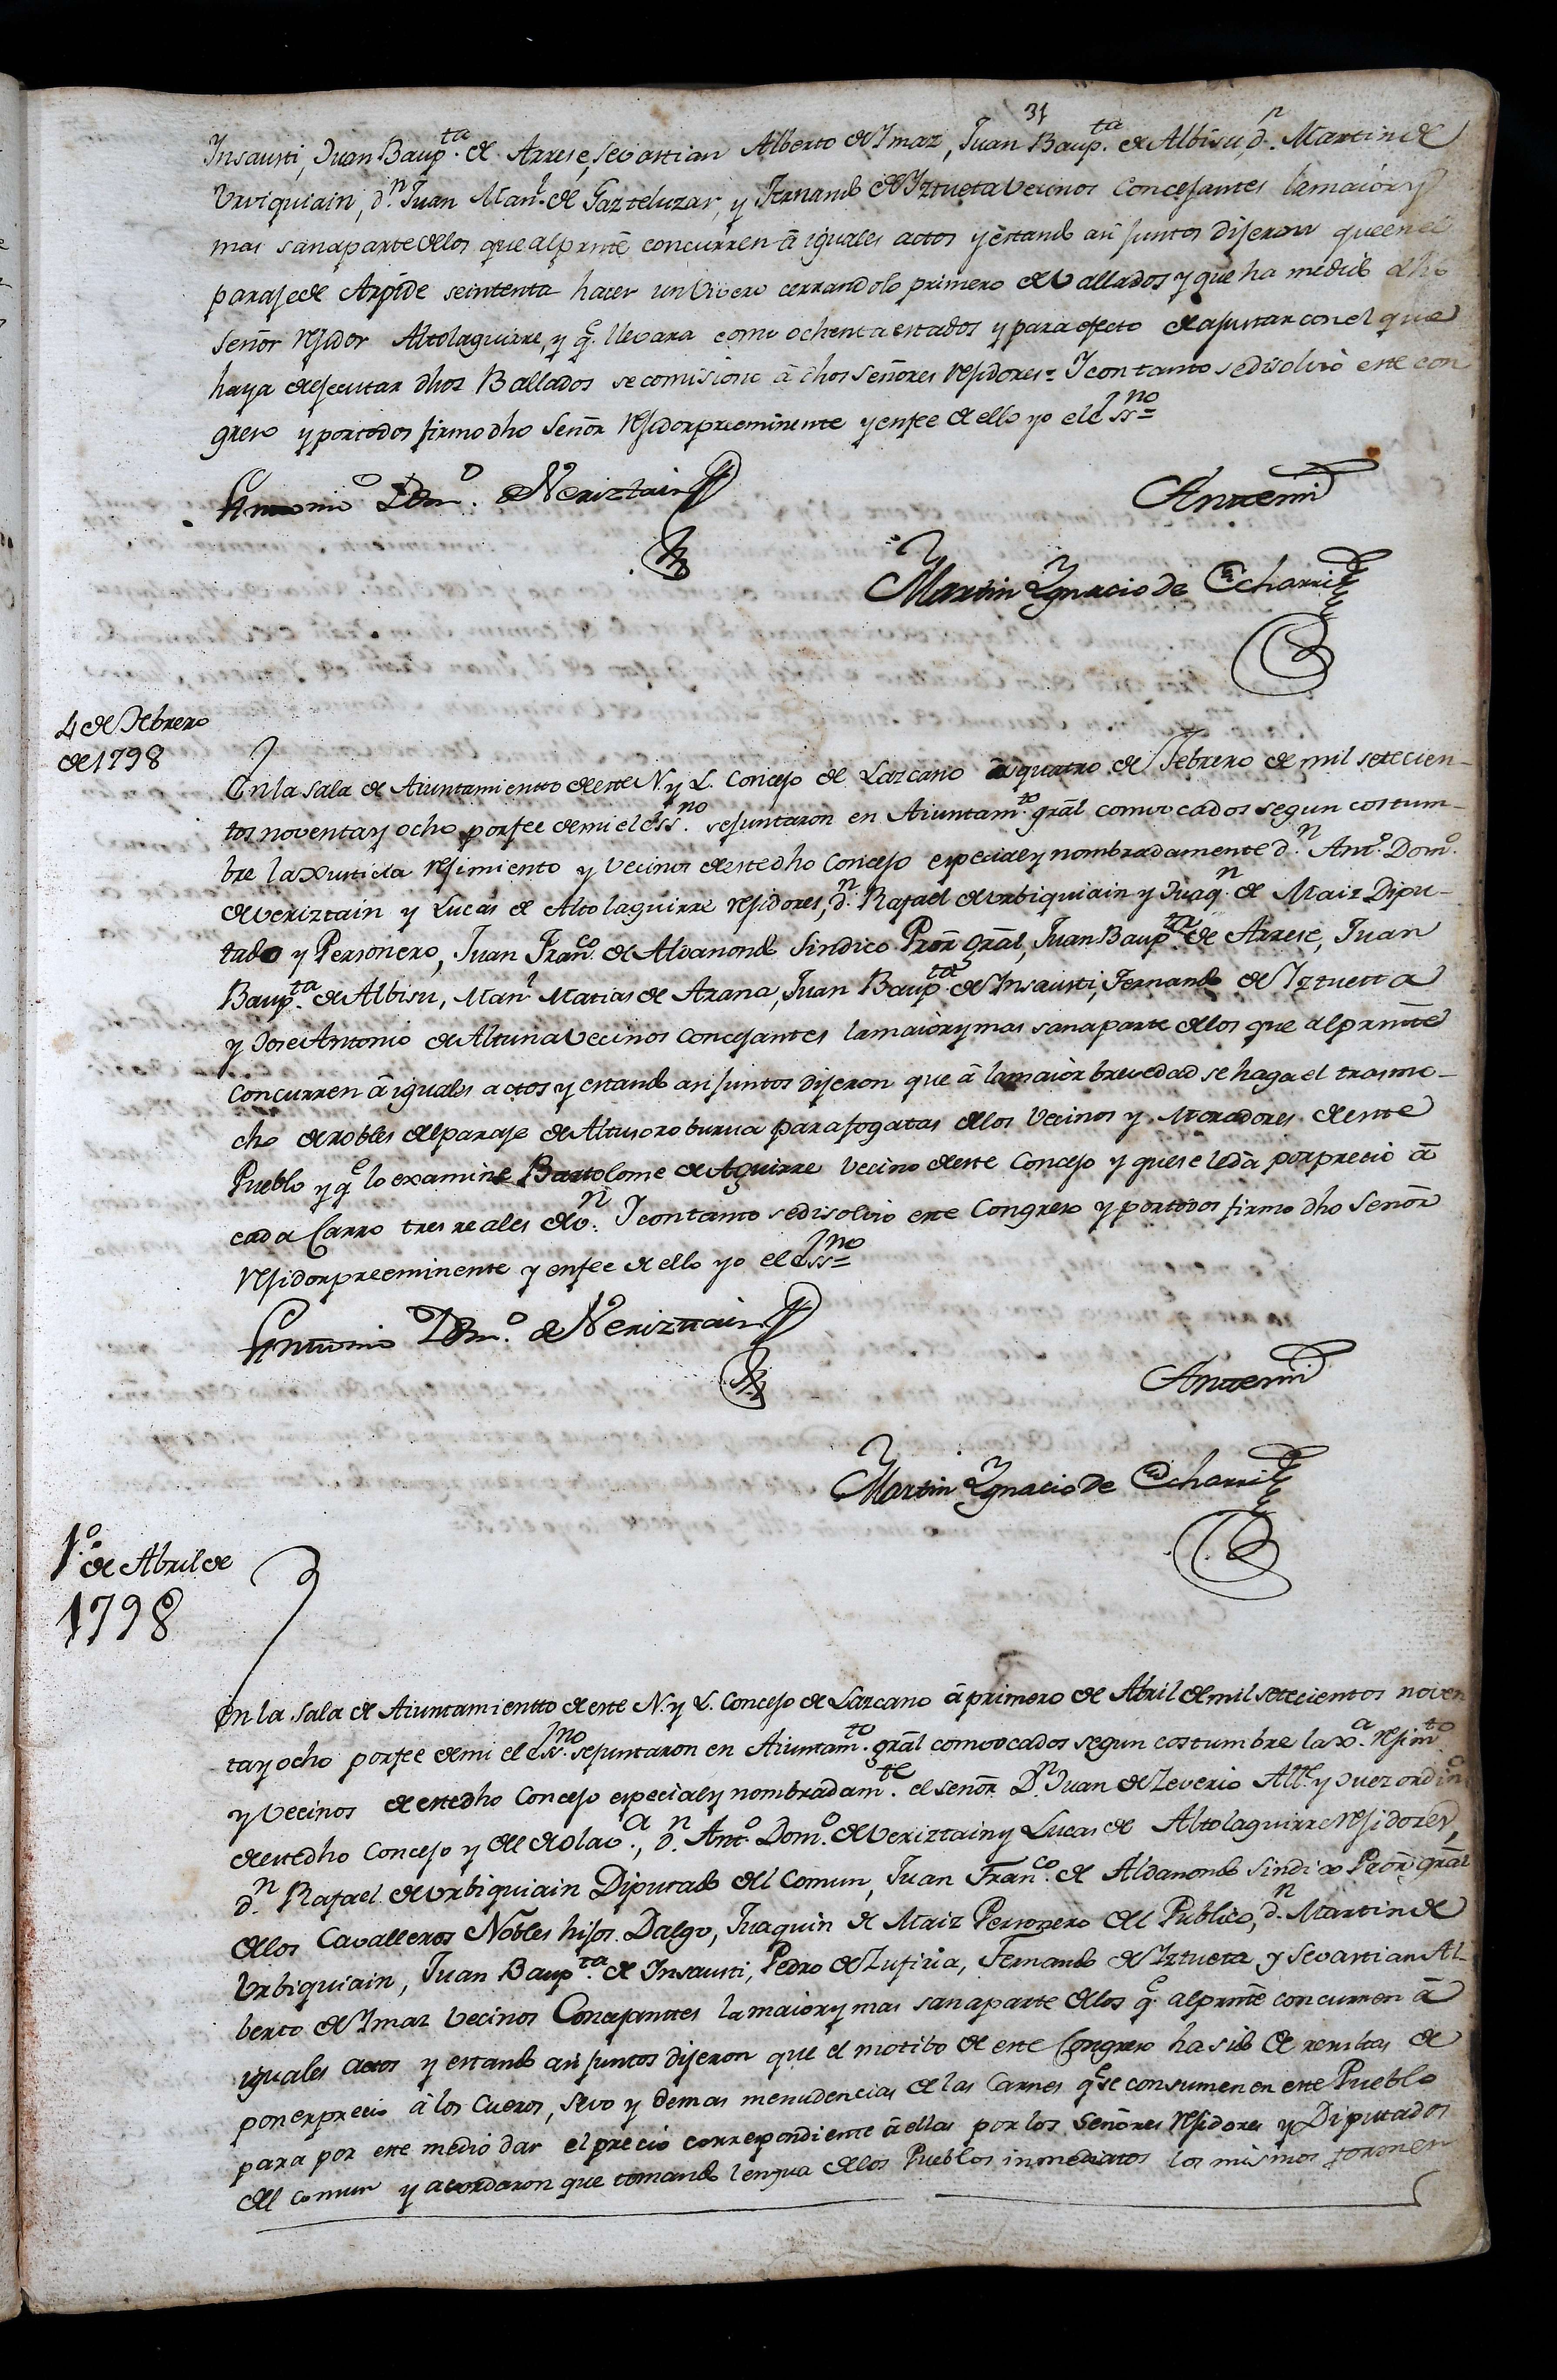 31
Insausti, Juan Baup.ta de Arrese, Sevastian Alberto de Imaz, Juan Baup.ta de Albisu, d.n Martin de
Urviquiain, d.n Juan Man.l de Gazteluzar, y Fernando de Iztueta Vecinos Concejantes la maior y
mas sana parte de los que al prnte concurren â iguales actos y êstando asi juntos dijeron que en el
paraje de Arpide se intenta hacer un Vivero cerrandolo primero de Vallados y que ha medido dho
Señor rejidor Altolaguirre, y q.e llevara como ochenta estados y para efecto de ajustar con el que
haya de ejecutar dhos Ballados se comisiono â dhos Señores rejidores = I con tanto se disolvio este con
greso y por todos firmo dho Señor rejidor preeminente y en fee de ello yo el Ess.no =
Antonio Dom.o de Veriztain
Antemi
Martin Ygnacio de Echarri
4 de Febrero
de 1798
En la Sala de Aiuntamientto de este N. y L. Concejo de Lazcano â quatro de Febrero de mil setecien-
tos noventa y ocho por fee de mi el Ess.no se juntaron en Aiuntam.to gral comvocados segun costum-
bre la Xusticia rejimiento y Vecinos de este dho Concejo especial y nombradamente d.n Ant.o Dom.o
de Veriztain y Lucas de Altolaguirre rejidores, d.n Rafael de Urbiquiain y Juaq.n de Maiz Dipu-
tado y Personero, Juan Fran.co de Aldanondo Sindico Pror Gral, Juan Baup.ta de Arrese, Juan
Baup.ta de Albisu, Man.l Matias de Arana, Juan Baup.ta de Insausti, Fernando de Iztuetta
y Jose Antonio de Altuna Vecinos Concejantes la maior y mas sana parte de los que al prnte
concurren â iguales actos y estando asi juntos dijeron que â la maior brevedad se haga el trasmo-
cho de robles del paraje de Altusoroburua para fogatas de los Vecinos y Moradores de este
Pueblo y q.e lo examine Bartolome de Aguirre Vecino de este Concejo y que se le dâ por precio â
cada Carro tres reales de v.n I con tanto se disolvio este Congreso y por todos firmo dho Señor
rejidor preeminente y en fee de ello yo el Ess.no =
Antonio Dom.o de Veriztain
Antemi
Martin Ygnacio de Echarri
1.o de Abril de
1798
En la Sala de Aiuntamientto de este N. y L. Concejo de Lazcano â primero de Abril de mil setecientos noven
ta y ocho por fee de mi el Ess.no se juntaron en Aiuntam.to gral comvocados segun costumbre la X.a rejim.to
y Vecinos de este dho Concejo especial y nombradam.te el señor D.n Juan de Zeverio Alle y Juez ordin.o
de este dho Concejo y del de Olav.a, d.n Ant.o Dom.o de Veriztain y Lucas de Altolaguirre rejidores,
d.n Rafael de Urbiquiain Diputado del Comun, Juan Fran.co de Aldanondo Sindico Pror gral
de los Cavalleros Nobles hijos Dalgo, Juaquin de Maiz Personero del Publico, d.n Martin de
Urbiquiain, Juan Baup.ta de Insausti, Pedro de Zufiria, Fernando de Iztueta, y Sevastian Al-
berto de Imaz Vecinos Concejanttes la maior y mas sana parte de los q.e al prnte concurren â
iguales actos y estando asi juntos dijeron que el motibo de este Congreso ha sido de resultas de
poner precio â los Cueros, sevo y demas menudencias de las Carnes q.e se consumen en este Pueblo
para por este medio dar el precio correspondiente â ellas por los Señores rejidores y Diputados
del comun y acordaron que tomando lengua de los Pueblos inmediatos los mismos